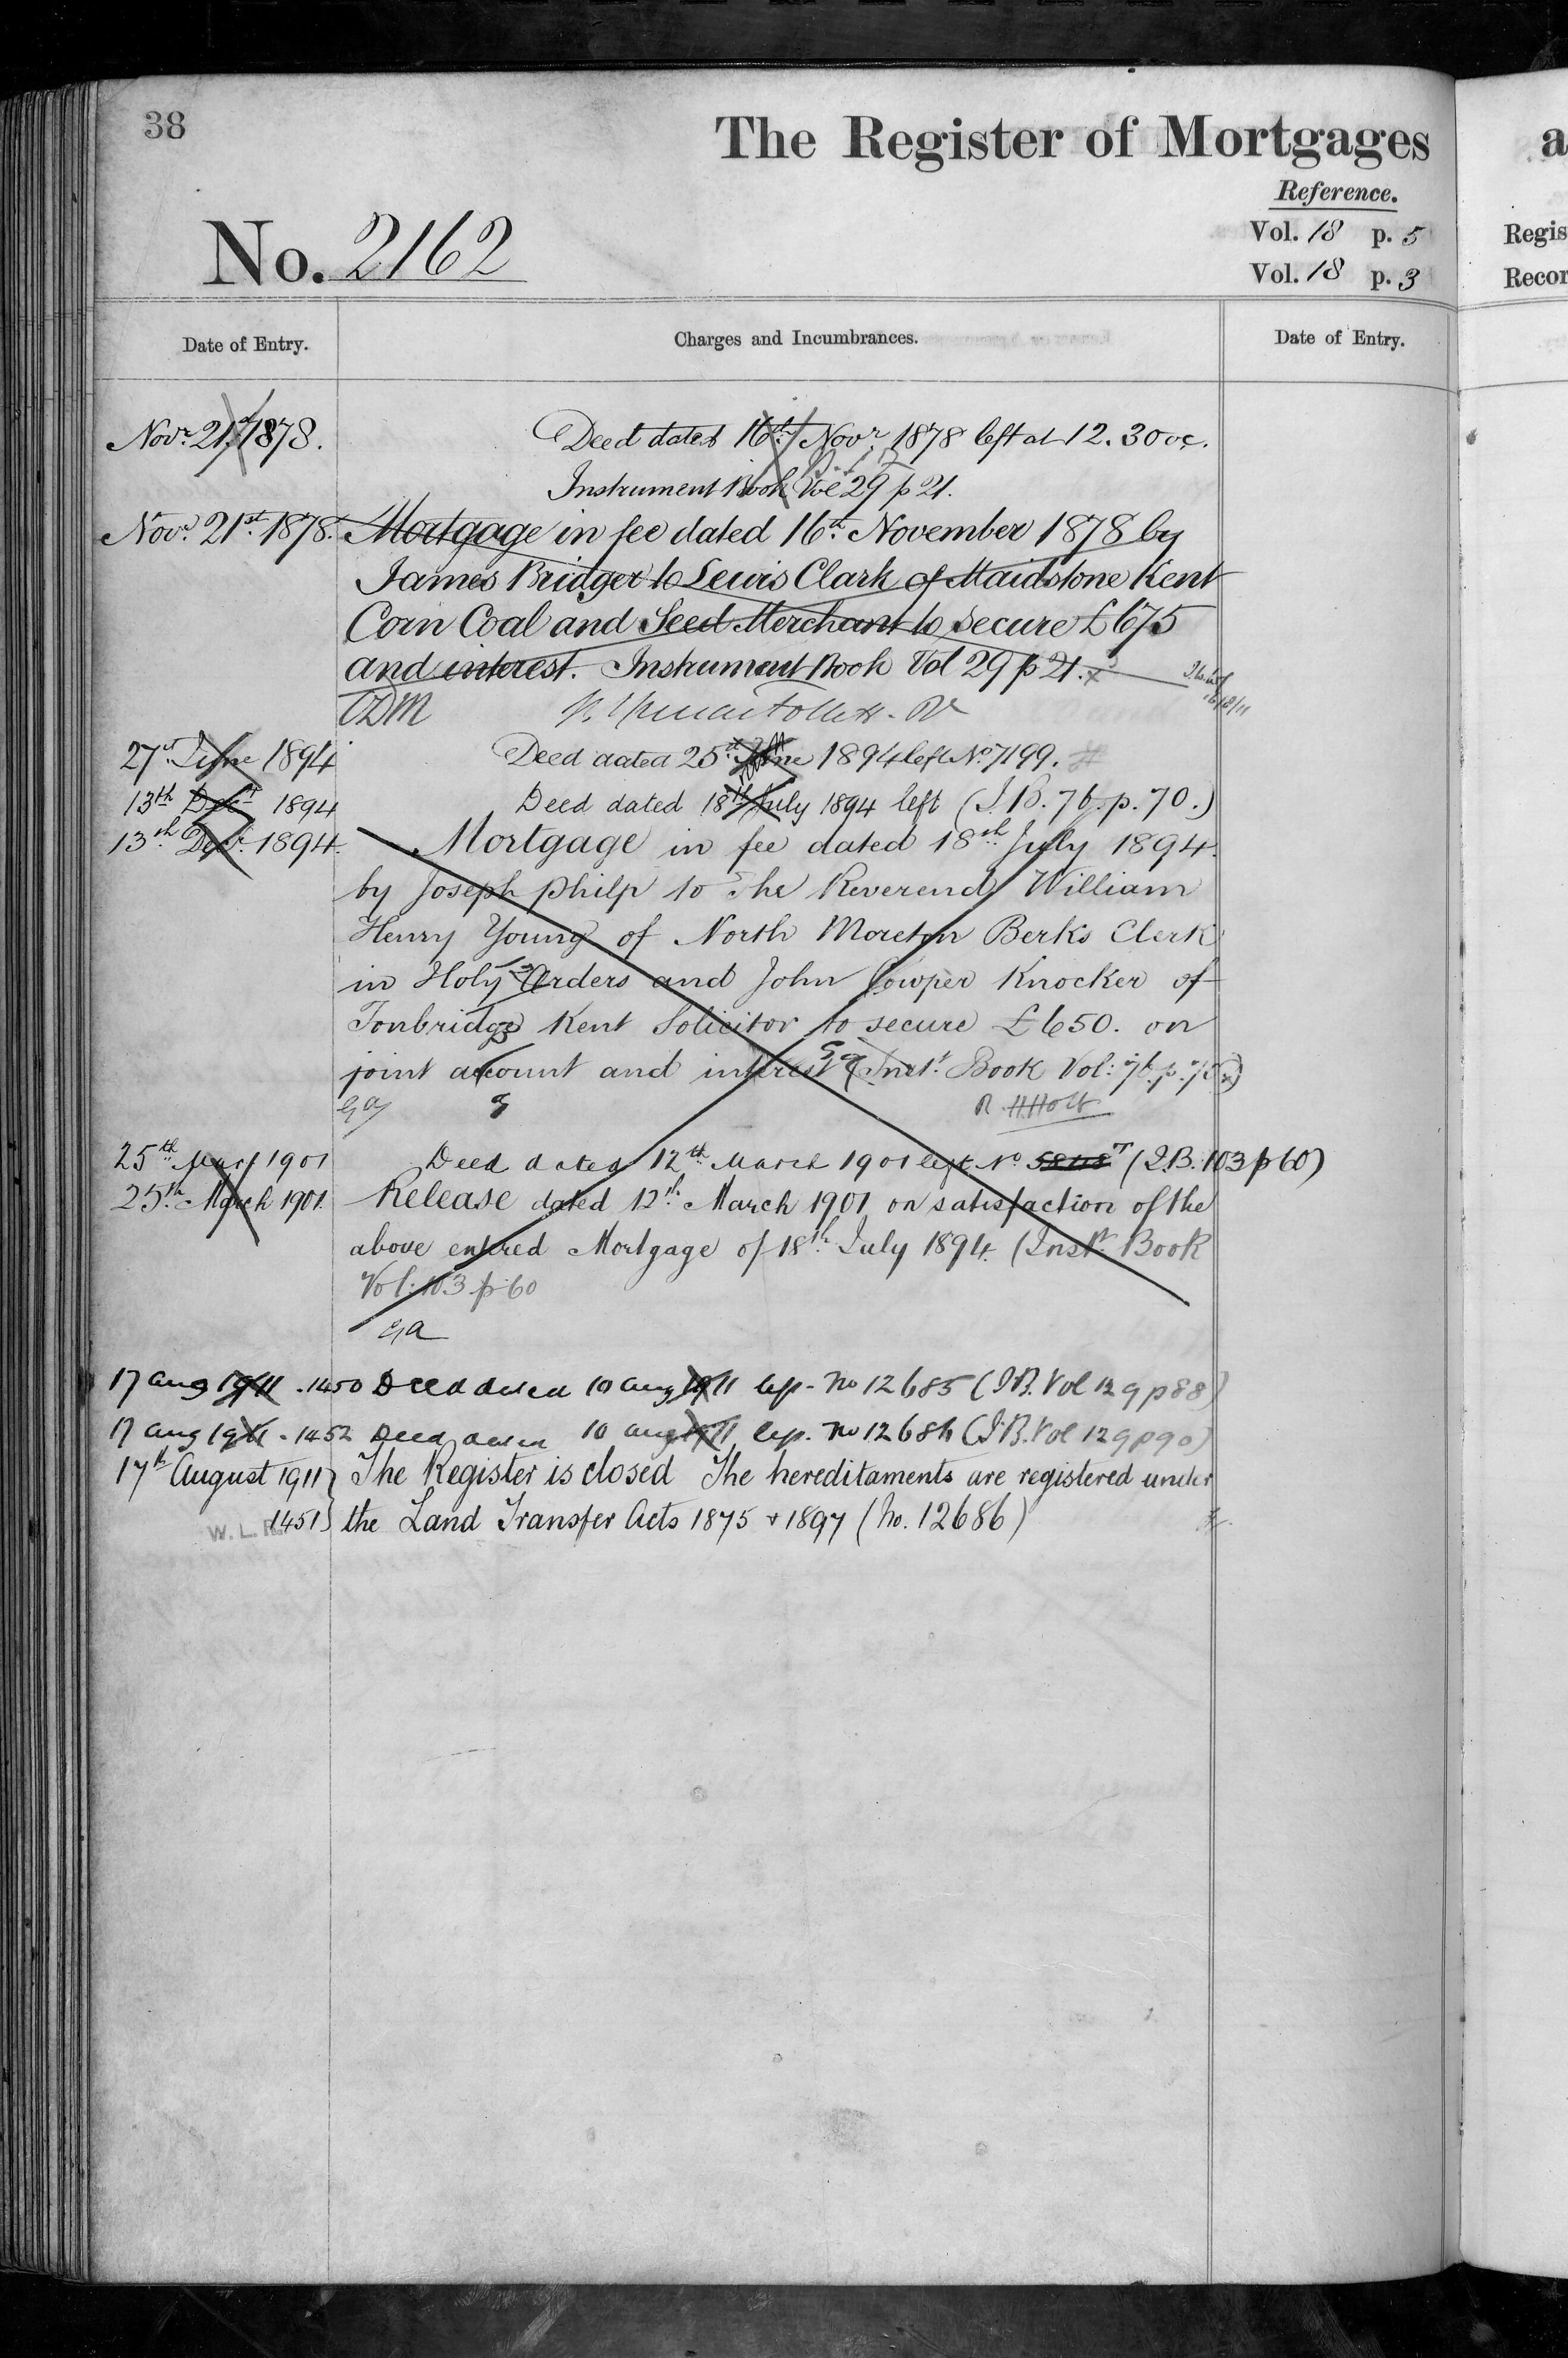 38
The Register of Mortgages
a
Reference.
No. 2162
Vol. 18 p. 5
Regis
Vol. 18 p. 3
Recor
Date of Entry.
Charges and Incumbrances.
Date of Entry.
Novr. 21st 1878.
Deed dated 16th Novr. 1878 left at 12.30
Instrument Book Vol 29 p 21.
Novr. 21st 1878. Mortgage in fee dated 16th November 1878 by
James Bridger to Lewis Clark of Maidstone Kent
Corn Coal and Seed Merchant to secure £675
and interest. Instrument Book Vol 29 p 21.
27th June 1894 Deed dated 25th June 1894 left No. 7199.
13th Decr 1894 Deed dated 18th July 1894 left (I.B. 76. p. 70.)
13th Decr. 1894. Mortgage in fee dated 18th July 1894.
by Joseph Philp to The Reverend William
Henry Young of North Moreton Berks Clerk
in Holy Orders and John Cowper Knocker of
Tonbridge Kent Solicitor to secure £650. on
joint account and interest (Inst. Book Vol: 76. p. 70)
R. H. Holt
25th March 1901 Deed dated 12th March 1901 left No. (I.B. 103 p 60)
25th March 1901. Release dated 12th March 1901 on satisfaction of the
above entered Mortgage of 18th July 1894. (Inst. Book
Vol. 103 p. 60
17 Aug 1911 - 1450 Deed dated 10 Aug 1911 left - No 12685 (I.B. Vol 129 p 88)
17 Aug 1911 - 1452 Deed dated 10 Aug 1911 left - No 12686 (I.B. Vol 129 p 90)
17th August 1911 The Register is closed The hereditaments are registered under
1451 the Land Transfer Acts 1875 & 1897 (No. 12686)